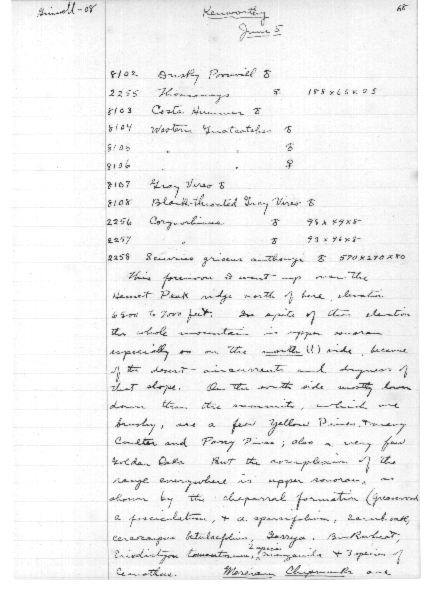 Grinnell - 08
Kenworthy
June 5
68
8102 Dusky Poorwill ♂
2255 Thomomys ♂ 188 x 65 x 25
8103 Costa Hummer ♂
8104 Western Gnatcatcher ♂
8105 " " ♂
8106 " " ♀
8107 Gray Vireo ♂
8108 Black-throated Gray Vireo ♂
2256 ♂ 98 x 49 x 8
2257 " ♂ 93 x 46 x 8
2258 Sciurus griseus anthonyi ♂ 570 x 270 x 80
This forenoon I went up over the
Hemet Peak ridge north of here, elevation
6800 to 7000 feet. In spite of this elevation
the whole mountain is upper sonoran
especially so on the north (!) side, because
of the desert-air currents and dryness of
that slope. On the south side mostly lower
down than the summits, which are
brushy, are a few Yellow Pines, & many
Coulter and Parry Pines; also a very few
Golden Oaks. But the complexion of the
range everywhere is upper sonoran, as
shown by the chaparral formation (greasewood
a. fasciculatum, & a. sparsifolium, scrub oak,
cercocarpus betulaefolius, Garrya, Buckwheat,
Eriodictyon tomentosum, 2 species manzanita & 3 species of
Ceanothus. Merriam Chipmunks are